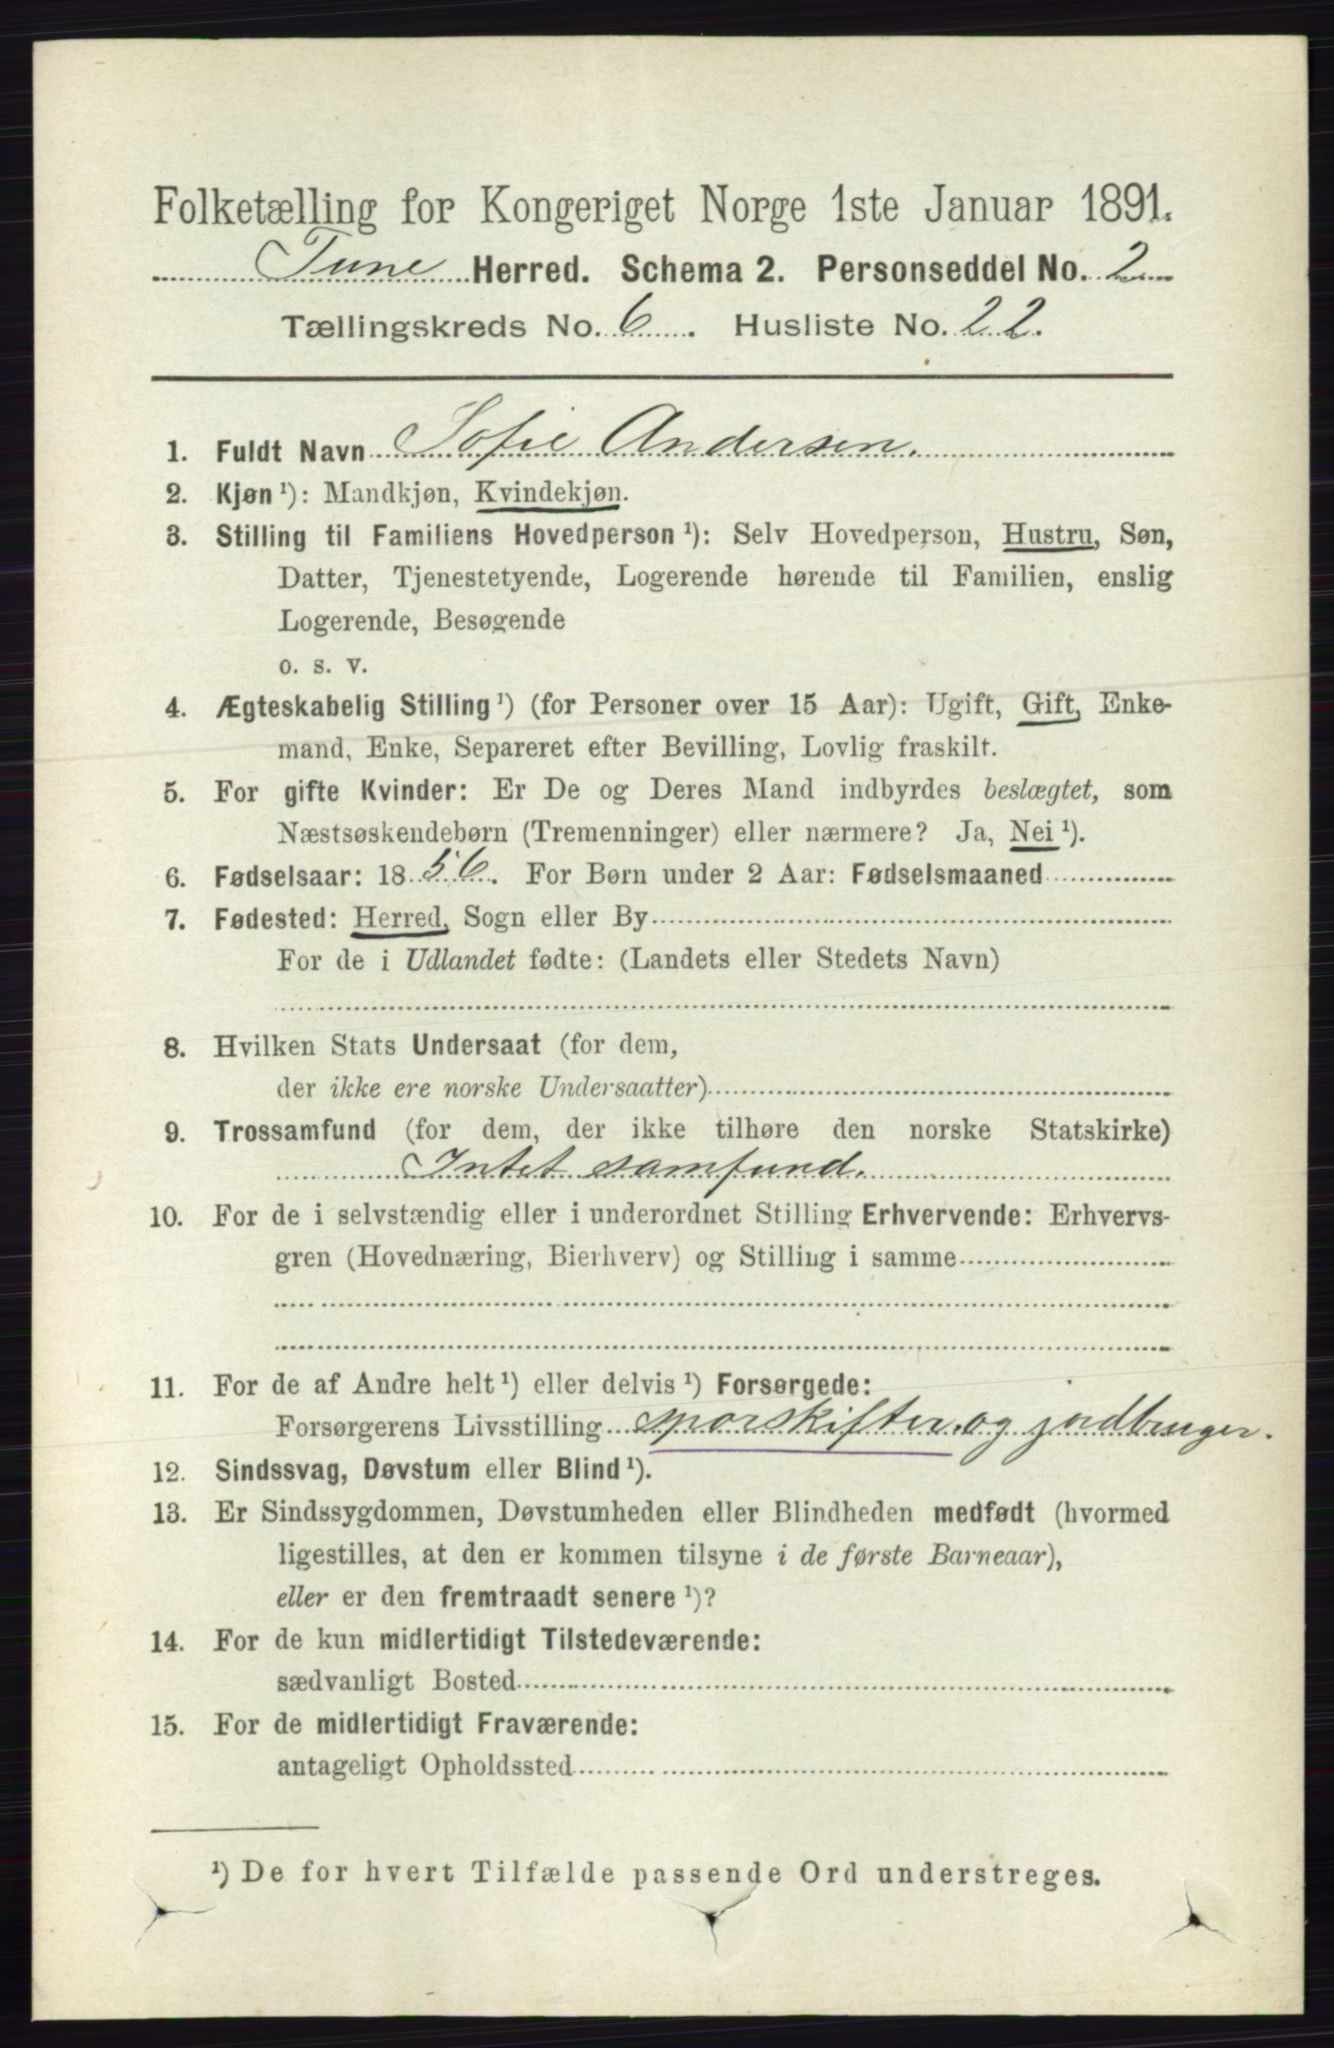 Folketælling for Kongeriget Norge 1ste Januar 1891.
Tune Herred. Schema 2. Personseddel No. 2
Tællingskreds No. 6. Husliste No. 22.
1. Fuldt Navn Sofie Andersen.
2. Kjøn ¹): Mandkjøn, Kvindekjøn.
3. Stilling til Familiens Hovedperson ¹): Selv Hovedperson, Hustru, Søn,
Datter, Tjenestetyende, Logerende hørende til Familien, enslig
Logerende, Besøgende
o. s. v.
4. Ægteskabelig Stilling ¹) (for Personer over 15 Aar): Ugift, Gift, Enke-
mand, Enke, Separeret efter Bevilling, Lovlig fraskilt.
5. For gifte Kvinder: Er De og Deres Mand indbyrdes beslægtet, som
Næstsøskendebørn (Tremenninger) eller nærmere? Ja, Nei ¹).
6. Fødselsaar: 1856. For Børn under 2 Aar: Fødselsmaaned
7. Fødested: Herred, Sogn eller By
For de i Udlandet fødte: (Landets eller Stedets Navn)
8. Hvilken Stats Undersaat (for dem,
der ikke ere norske Undersaatter)
9. Trossamfund (for dem, der ikke tilhøre den norske Statskirke)
Intet samfund.
10. For de i selvstændig eller i underordnet Stilling Erhvervende: Erhvervs-
gren (Hovednæring, Bierhverv) og Stilling i samme
11. For de af Andre helt ¹) eller delvis ¹) Forsørgede:
Forsørgerens Livsstilling sporskifter og jordbruger.
12. Sindssvag, Døvstum eller Blind ¹).
13. Er Sindssygdommen, Døvstumheden eller Blindheden medfødt (hvormed
ligestilles, at den er kommen tilsyne i de første Barneaar),
eller er den fremtraadt senere ¹)?
14. For de kun midlertidigt Tilstedeværende:
sædvanligt Bosted
15. For de midlertidigt Fraværende:
antageligt Opholdssted
¹) De for hvert Tilfælde passende Ord understreges.